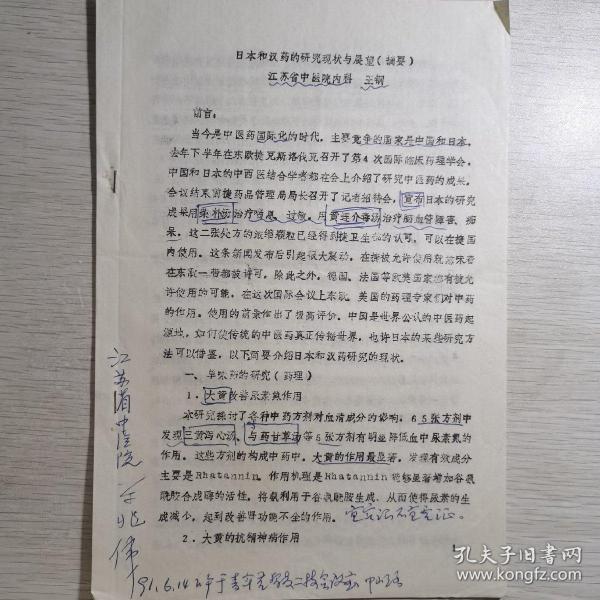 日本和汉药的研究现状与展望(摘要)
江苏省中医院内科 王钢
前言:
当今是中医药国际化的时代,主要竞争的国家是中国和日本,
去年下半年在东欧捷克斯洛伐克召开了第4次国际临床药理学会,
中国和日本的中西医结合学者都在会上介绍了研究中医药的成果,
会议结束前捷药品管理局局长召开了记者招待会,宣布日本的研究
成果用柴朴汤治疗哮喘、过敏,用黄连介毒汤治疗脑血管障害、痴
呆,这二张处方的浓缩颗粒已经得到捷卫生部的认可,可以在捷国
内使用。这条新闻发布后引起极大轰动,在捷被允许使用就意味着
在东欧一带都被许可,除此之外,德国、法国等欧美国家都有被允
许使用的可能,在这次国际会议上东欧、美国的药理专家们对中药
的作用、使用的前景作出了很高评价,中国是世界公认的中医药起
源地,如何使传统的中医药真正传播世界,也许日本的某些研究方
法可以借鉴,以下简要介绍日本和汉药研究的现状。
一、单味药的研究(药理)
1.大黄改善尿素氮作用
本研究探讨了各种中药方剂对血清成分的影响,65张方剂中
发现三黄泻心汤、与药甘草汤等5张方剂有明显降低血中尿素氮的
作用。这些方剂的构成中药中,大黄的作用最显著,发现有效成分
主要是Rhatannin,作用机理是Rhatannin能够显著增加谷氨
酰胺合成酶的活性,将氨利用于谷氨酰胺生成,从而使得尿素的生
成减少,起到改善肾功能不全的作用。
2.大黄的抗精神病作用
江苏省中医院
91.6.14
孔夫子旧书网
book.kongfz.com